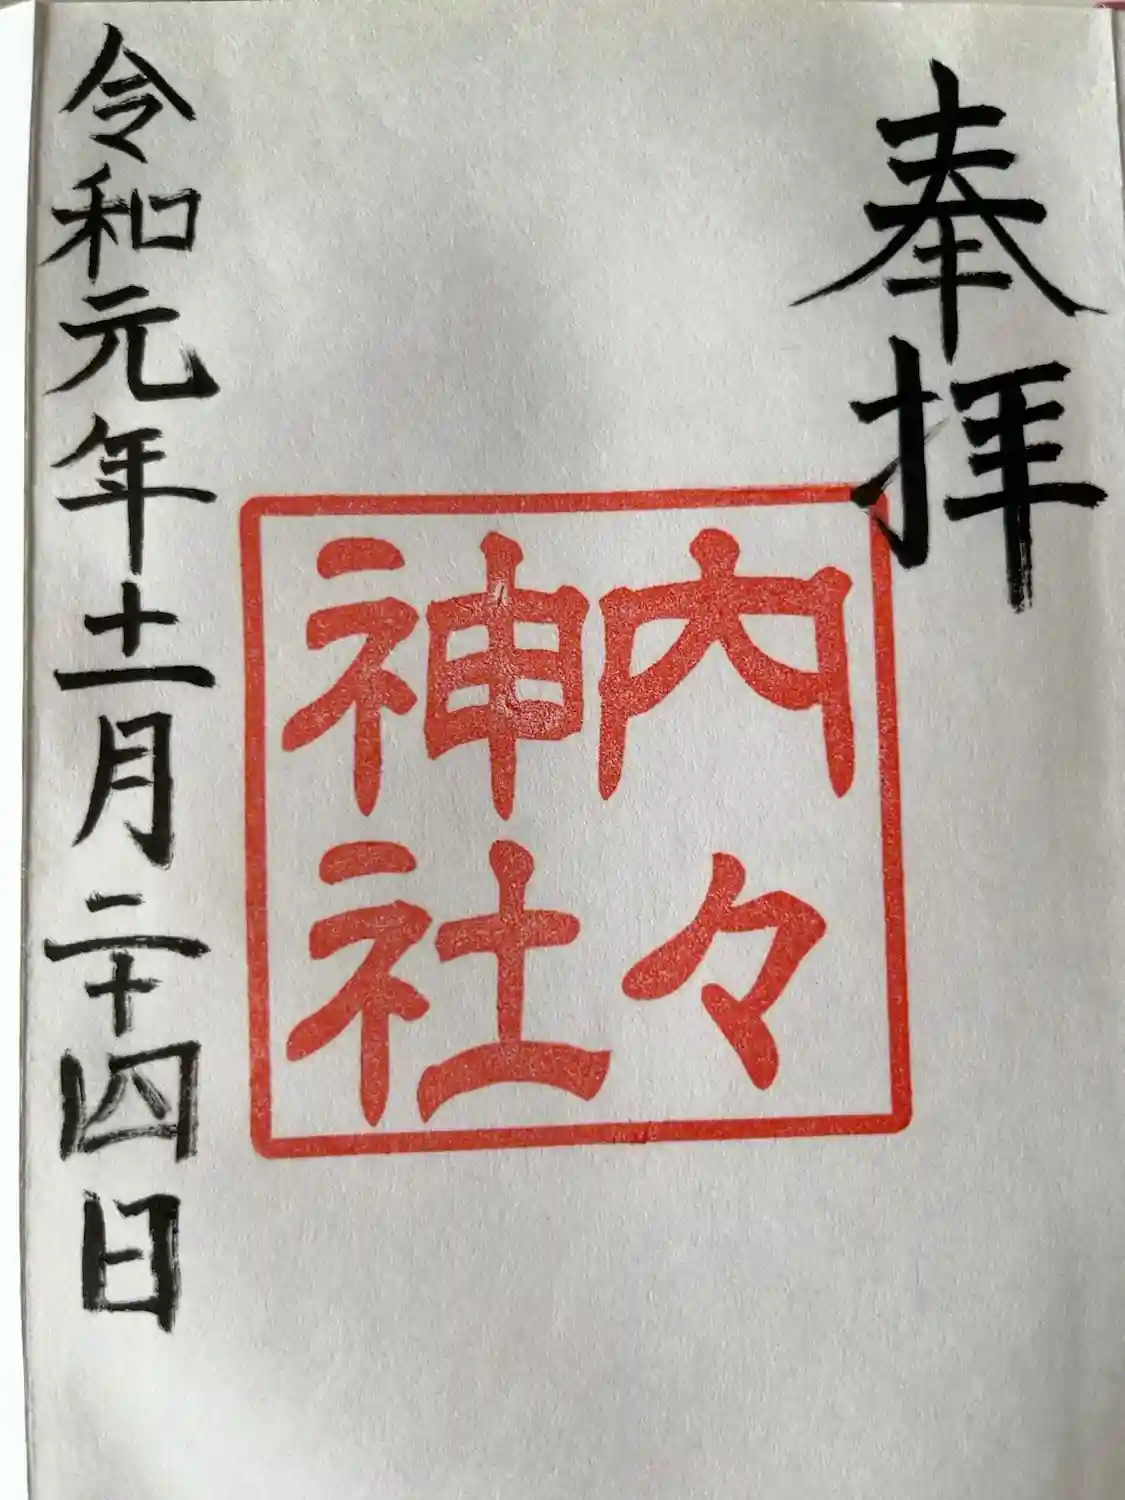 奉拝
内々
神社
令和元年十一月二十四日